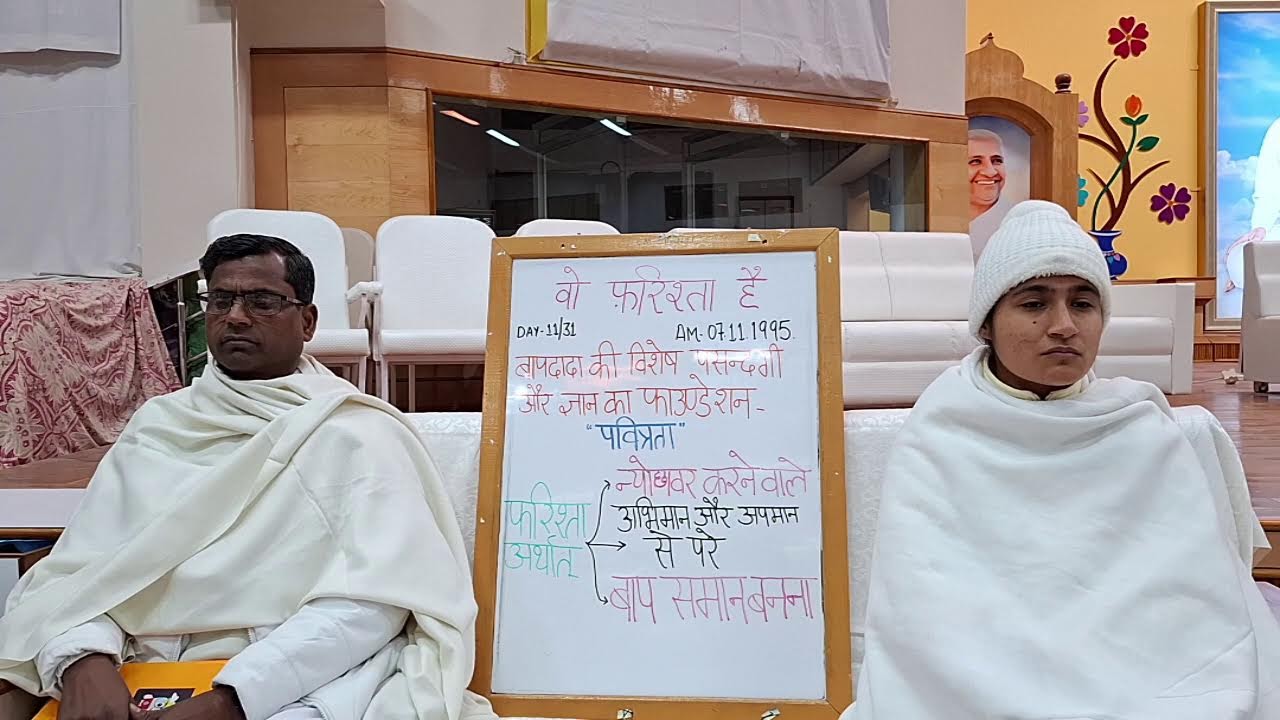 वो फ़रिश्ता है
DAY-11/31 AM-07.11.1995.
बापदादा की विशेष पसन्दगी
और ज्ञान का फाउण्डेशन-
"पवित्रता"
फरिश्ता अर्थात्
न्योछावर करने वाले
अभिमान और अपमान
से परे
बाप समान बनना